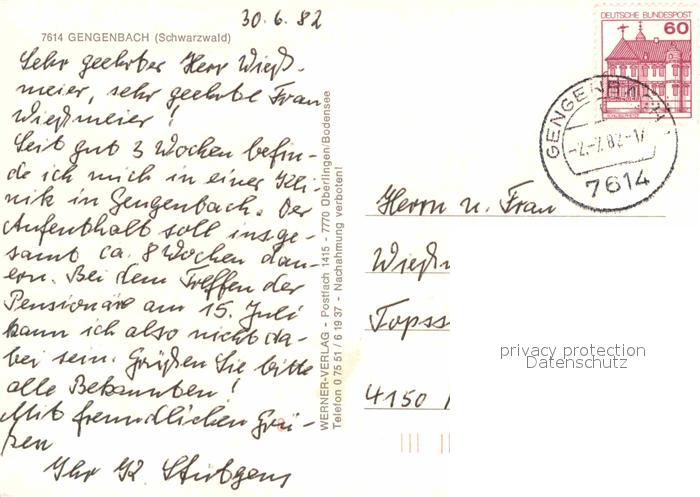 30.6.82
7614 GENGENBACH (Schwarzwald)
Sehr geehrter Herr Wieß-
meier, sehr geehrte Frau
Wießmeier!
Seit gut 3 Wochen befin-
de ich mich in einer Kli-
nik in Gengenbach. Der
Aufenthalt soll insge-
samt ca. 8 Wochen dau-
ern. Bei dem Treffen der
Pensionäre am 15. Juli
kann ich also nicht da-
bei sein. Grüßen Sie bitte
alle Bekannten!
Mit freundlichen Grü-
ßen
Ihr K. Stübgens
WERNER-VERLAG - Postfach 1415 - 7770 Überlingen/Bodensee
Telefon 0 75 51 / 6 19 37 - Nachahmung verboten!
DEUTSCHE BUNDESPOST
60
GENGENBACH
-2.-7.82-1
7614
Herrn u. Frau
Wieß
Topss
4150
privacy protection
Datenschutz